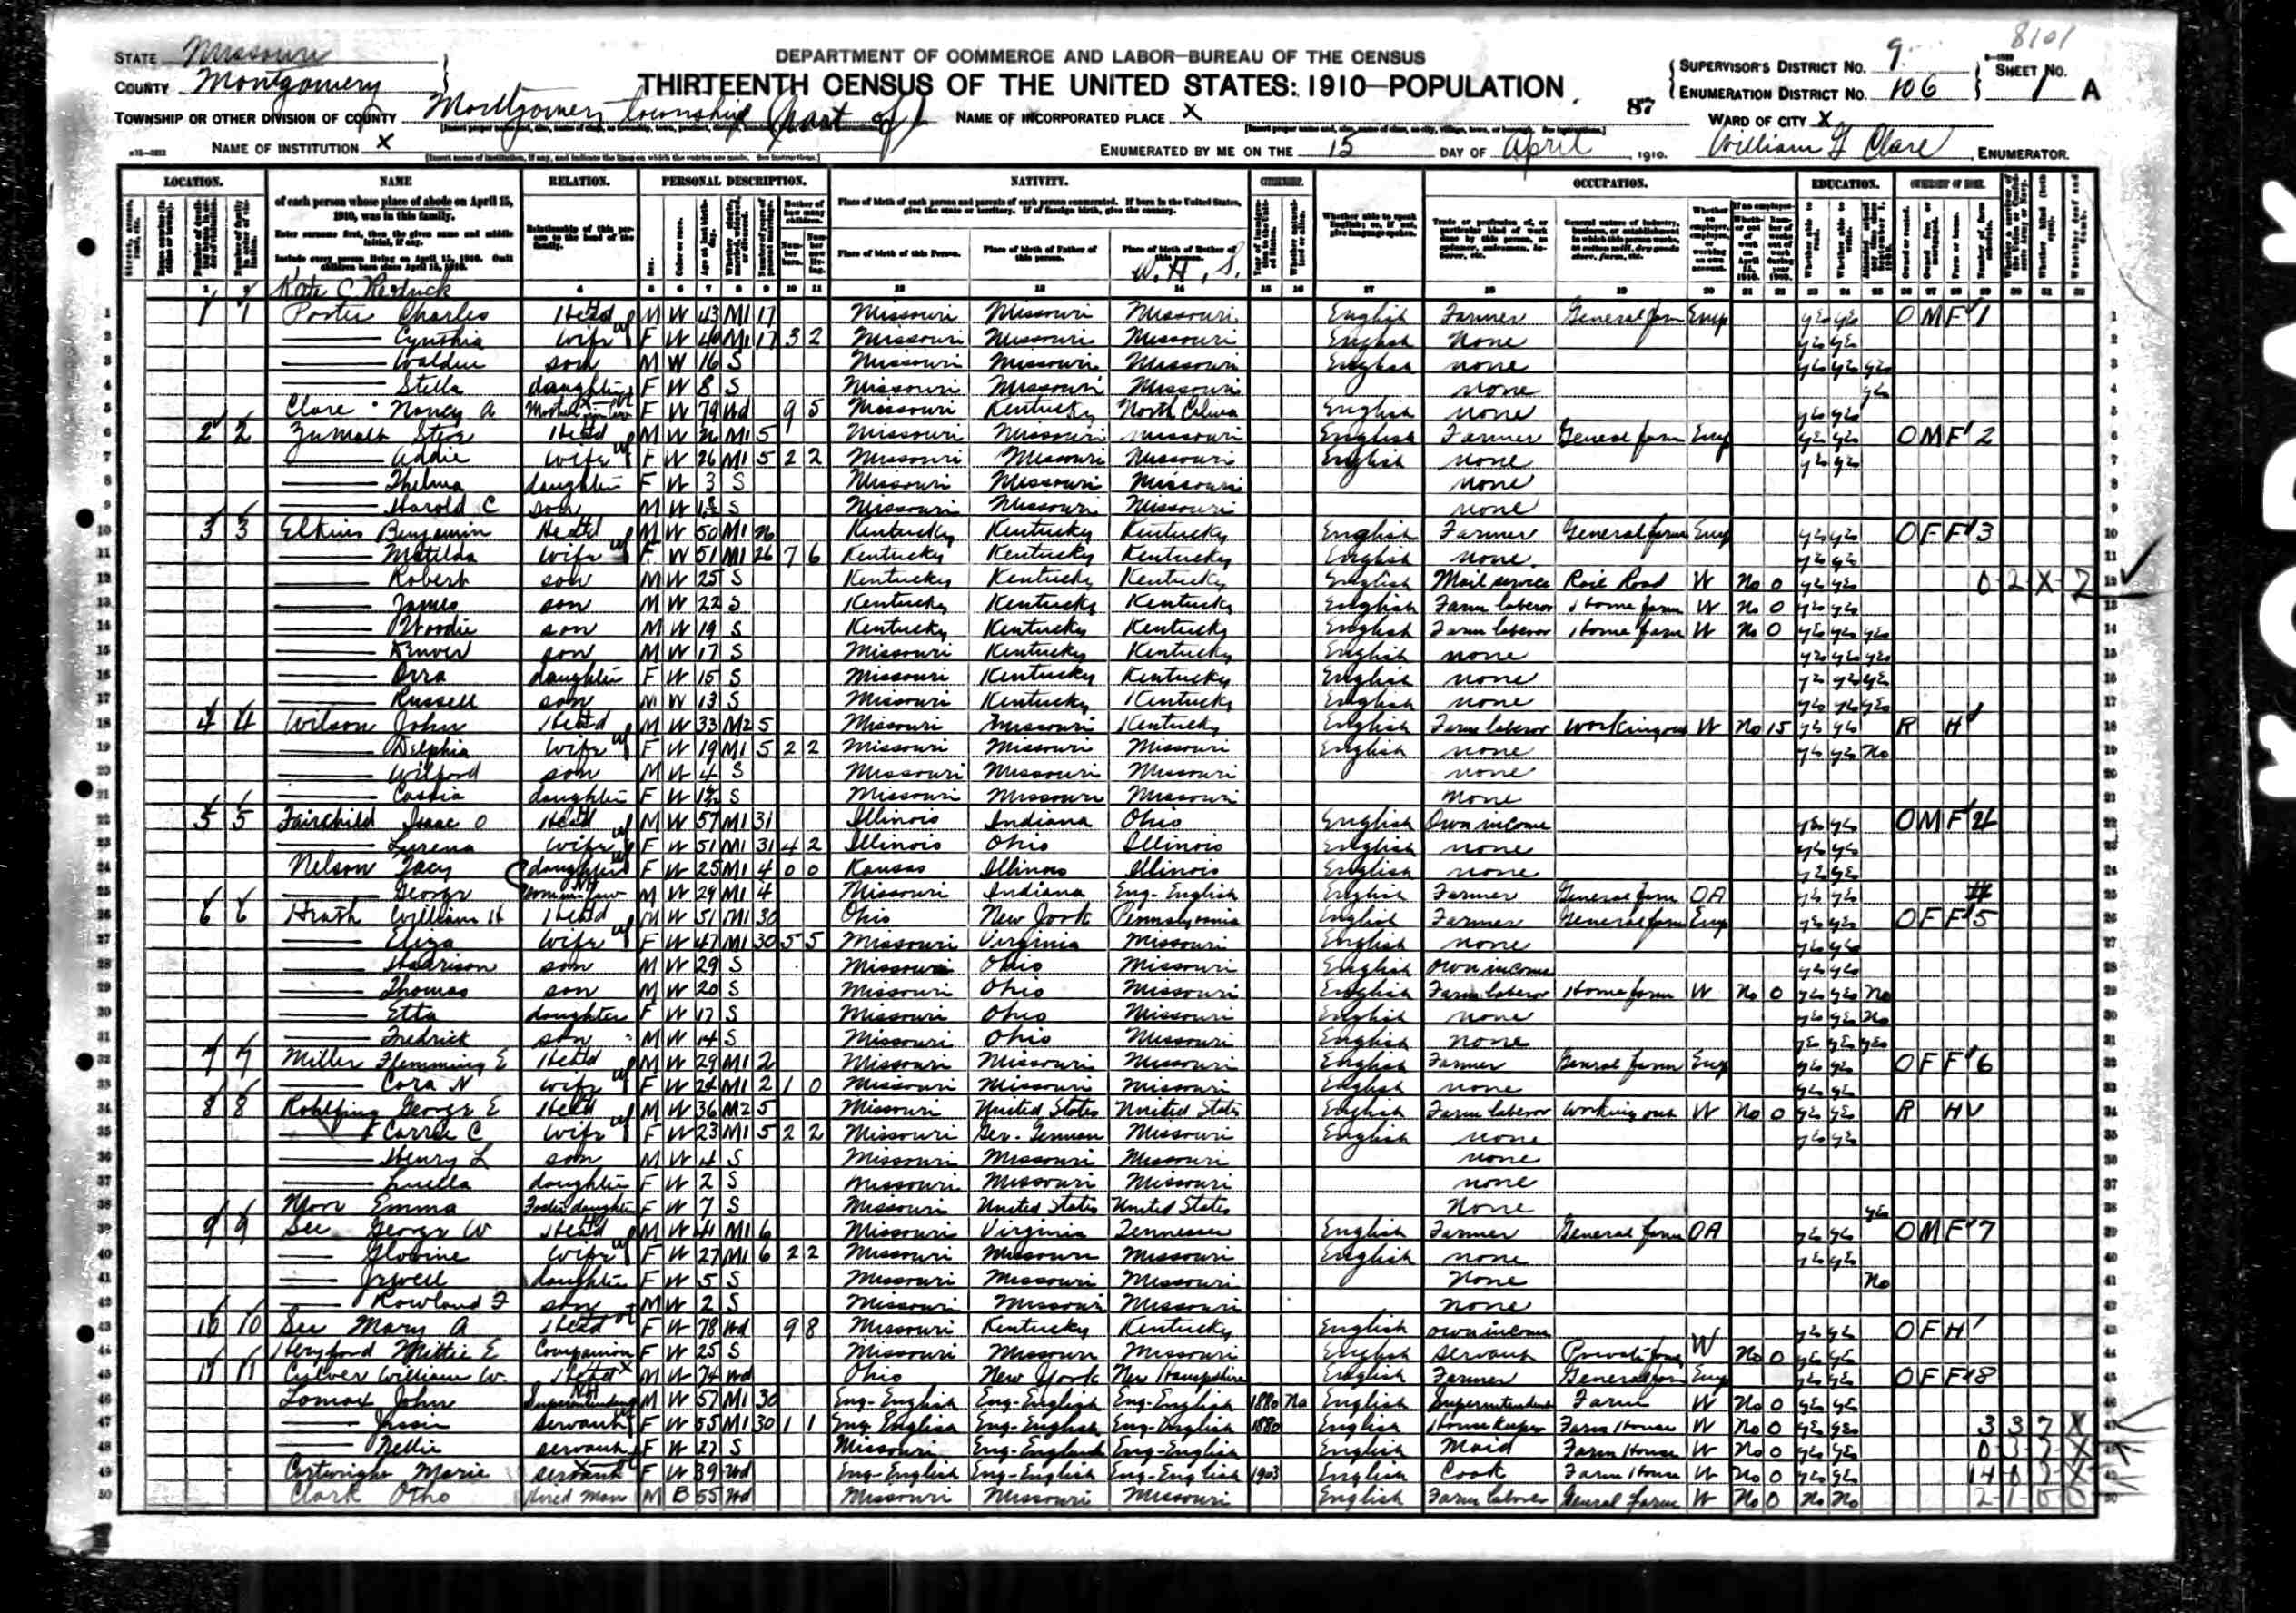 8101
STATE Missouri
COUNTY Montgomery
TOWNSHIP OR OTHER DIVISION OF COUNTY Montgomery township (part of)
DEPARTMENT OF COMMERCE AND LABOR—BUREAU OF THE CENSUS
THIRTEENTH CENSUS OF THE UNITED STATES: 1910—POPULATION
NAME OF INCORPORATED PLACE X
87
SUPERVISOR'S DISTRICT No. 9
ENUMERATION DISTRICT No. 106
SHEET No. 1 A
WARD OF CITY X
NAME OF INSTITUTION X
ENUMERATED BY ME ON THE 15 DAY OF April, 1910. William G Clare, ENUMERATOR.
LOCATION. NAME RELATION. PERSONAL DESCRIPTION. NATIVITY. CITIZENSHIP. OCCUPATION. EDUCATION. OWNERSHIP OF HOME.
of each person whose place of abode on April 15, 1910, was in this family.
Enter surname first, then the given name and middle initial, if any.
Include every person living on April 15, 1910. Omit children born since April 15, 1910.
Relationship of this person to the head of the family.
Place of birth of each person and parents of each person enumerated. If born in the United States, give the state or territory. If of foreign birth, give the country.
Place of birth of this Person. Place of birth of Father of this person. Place of birth of Mother of this person.
Whether able to speak English; or, if not, give language spoken.
W. H. S.
Kate C
1 1 1 Porter Charles Head M W 43 M1 17 Missouri Missouri Missouri English Farmer General farm Emp yes yes O M F 1
2 Cynthia wife F W M1 17 3 2 Missouri Missouri Missouri English None yes yes
3 son M W 16 S Missouri Missouri Missouri English none yes yes yes
4 Stella daughter F W 8 S Missouri Missouri Missouri none yes
5 Clare Nancy A Mother in law F W 79 Wd 9 5 Missouri Kentucky North English none yes yes
6 2 2 Zumalt Head M W M1 5 Missouri Missouri Missouri English Farmer General farm Emp yes yes O M F 2
7 Addie wife F W 26 M1 5 2 2 Missouri Missouri Missouri English none yes yes
8 Thelma daughter F W 3 S Missouri Missouri Missouri none
9 Harold C son M W S Missouri Missouri Missouri none
10 3 3 Elkins Benjamin Head M W 50 M1 26 Kentucky Kentucky Kentucky English Farmer General farm Emp yes yes O F F 3
11 Matilda wife F W 51 M1 26 7 6 Kentucky Kentucky Kentucky English none yes yes
12 Robert son M W 25 S Kentucky Kentucky Kentucky English Mail service Rail Road W No 0 yes yes 0-2-X-7
13 James son M W 22 S Kentucky Kentucky Kentucky English Farm laborer Home farm W No 0 yes yes
14 Woodie son M W 19 S Kentucky Kentucky Kentucky English Farm laborer Home farm W No 0 yes yes yes
15 Denver son M W 17 S Missouri Kentucky Kentucky English none yes yes yes
16 Orra daughter F W 15 S Missouri Kentucky Kentucky English none yes yes yes
17 Russell son M W 13 S Missouri Kentucky Kentucky English none yes yes yes
18 4 4 Wilson John Head M W 33 M2 5 Missouri Missouri Kentucky English Farm laborer working out W No 15 yes yes R H
19 Delphia wife F W 19 M1 5 2 2 Missouri Missouri Missouri English none yes yes No
20 Wilford son M W 4 S Missouri Missouri Missouri none
21 Cassia daughter F W S Missouri Missouri Missouri none
22 5 5 Fairchild Isaac O Head M W 57 M1 31 Illinois Indiana Ohio English Own income yes yes O M F 4
23 Lurena wife F W 51 M1 31 4 2 Illinois Ohio Illinois English none yes yes
24 Nelson daughter F W 25 M1 4 0 0 Kansas Illinois Illinois English none yes yes
25 George son in law M W 29 M1 4 Missouri Indiana Eng-English English Farmer General farm OA yes yes
26 6 6 Heath William H Head M W 51 M1 30 Ohio New York Pennsylvania English Farmer General farm Emp yes yes O F F 5
27 Eliza wife F W 47 M1 30 5 5 Missouri Virginia Missouri English none yes yes
28 Harrison son M W 29 S Missouri Ohio Missouri English own income yes yes
29 Thomas son M W 20 S Missouri Ohio Missouri English Farm laborer Home farm W No 0 yes yes No
30 Etta daughter F W 17 S Missouri Ohio Missouri English none yes yes No
31 Fredrick son M W 14 S Missouri Ohio Missouri English none yes yes yes
32 7 7 Miller Flemming E Head M W 29 M1 2 Missouri Missouri Missouri English Farmer General farm Emp yes yes O F F 6
33 Cora N wife F W 24 M1 2 1 0 Missouri Missouri Missouri English none yes yes
34 8 8 Rohlfing George E Head M W 36 M2 5 Missouri United States United States English Farm laborer working out W No 0 yes yes R H
35 Carrie C wife F W 23 M1 5 2 2 Missouri Ger-German Missouri English none yes yes
36 Henry L son M W 4 S Missouri Missouri Missouri none
37 Luella daughter F W 2 S Missouri Missouri Missouri none
38 Emma Foster daughter F W 7 S Missouri United States United States None yes
39 9 9 See George W Head M W 41 M1 6 Missouri Virginia Tennessee English Farmer General farm OA yes yes O M F 7
40 wife F W 27 M1 6 2 2 Missouri Missouri Missouri English none yes yes
41 daughter F W 5 S Missouri Missouri Missouri None No
42 Rowland F son M W 2 S Missouri Missouri Missouri none
43 10 10 See Mary A Head F W 78 Wd 9 8 Missouri Kentucky Kentucky English own income yes yes O F H
44 Mittie E Companion F W 25 S Missouri Missouri Missouri English servant Private W No 0 yes yes
45 11 11 Culver William W. Head M W 74 Wd Ohio New York New Hampshire English Farmer General farm Emp yes yes O F F 8
46 Lomax John Superintendent M W 57 M1 30 Eng-English Eng-English Eng-English 1880 No English Superintendent Farm W No 0 yes yes
47 Jessie servant F W 55 M1 30 1 1 Eng-English Eng-English Eng-English 1880 English Housekeeper Farm House W No 0 yes yes 3 3 7 X
48 Nellie servant F W 27 S Missouri Eng-England Eng-English English Maid Farm House W No 0 yes yes
49 Cartwright Marie servant F W 39 Wd Eng-English Eng-English Eng-English 1903 English Cook Farm House W No 0 yes yes
50 Clark Otho Hired man M B 55 Wd Missouri Missouri Missouri English Farm laborer General farm W No 0 No No 2-1-0 0
KODAK